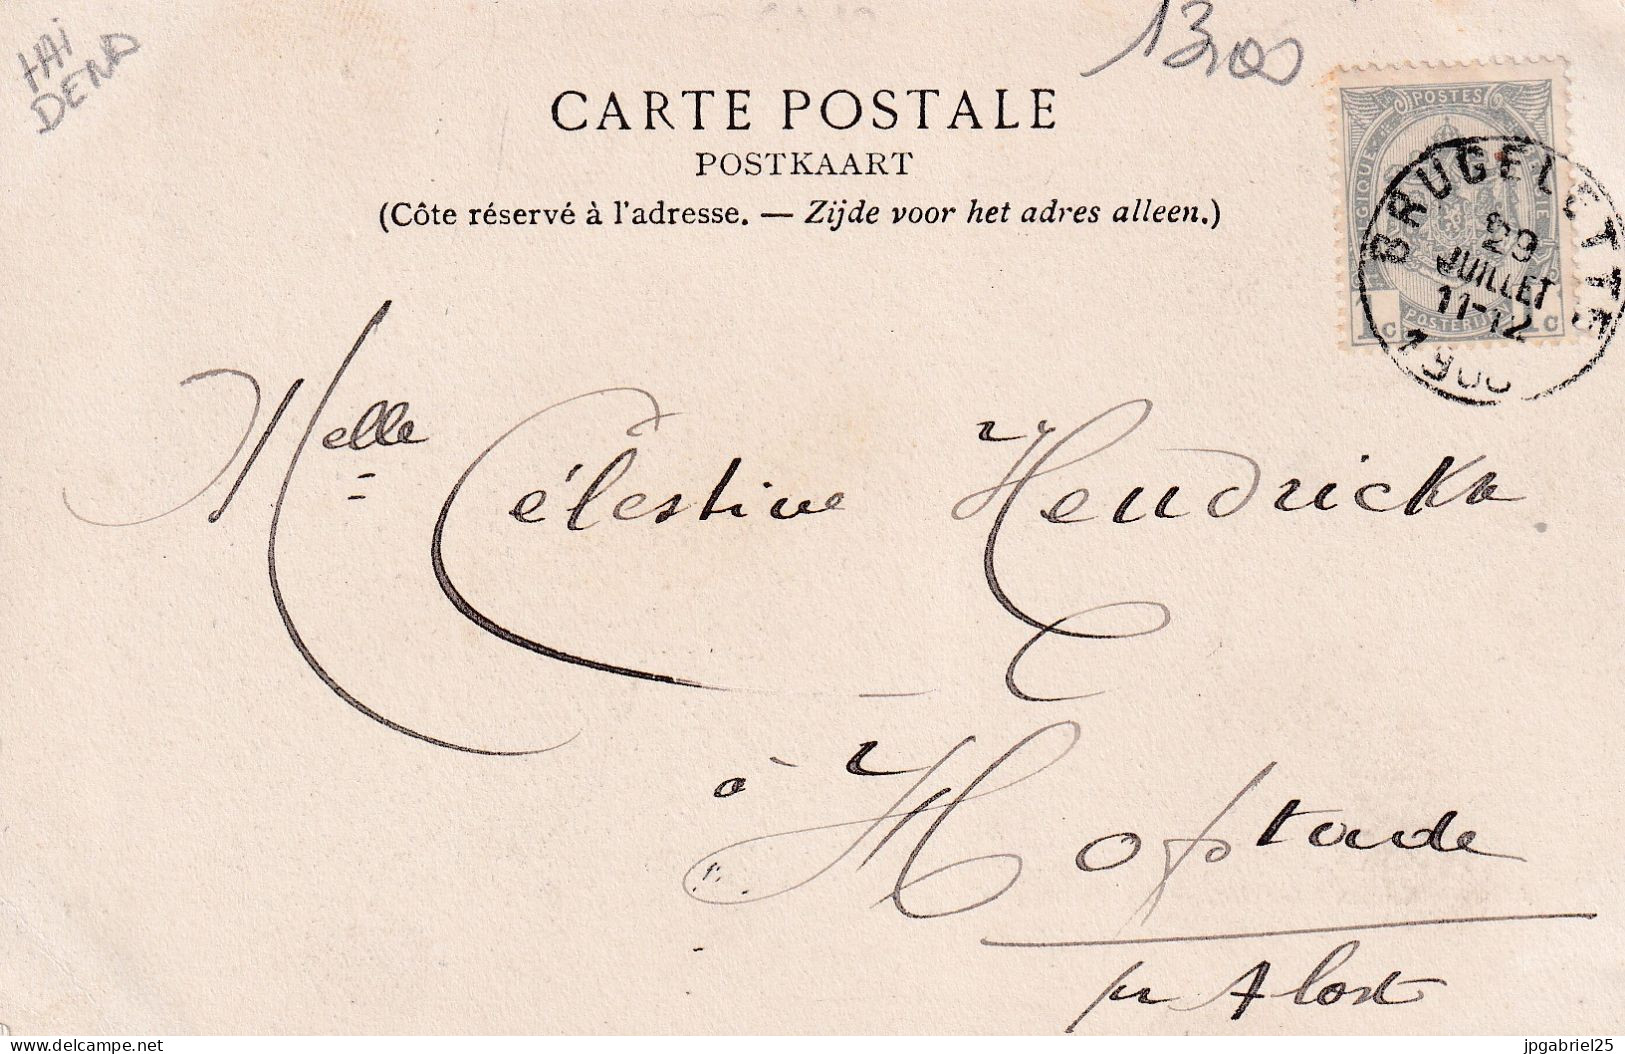 HAI
DEND
13,00
CARTE POSTALE
POSTKAART
(Côte réservé à l'adresse. — Zijde voor het adres alleen.)
POSTES
1c 1c
POSTERIJEN
BRUGELETTE
29
JUILLET
11-12
1900
Melle Célestine Hendrickx
à Hofstade
pr Alost
delcampe.net
jpgabriel25